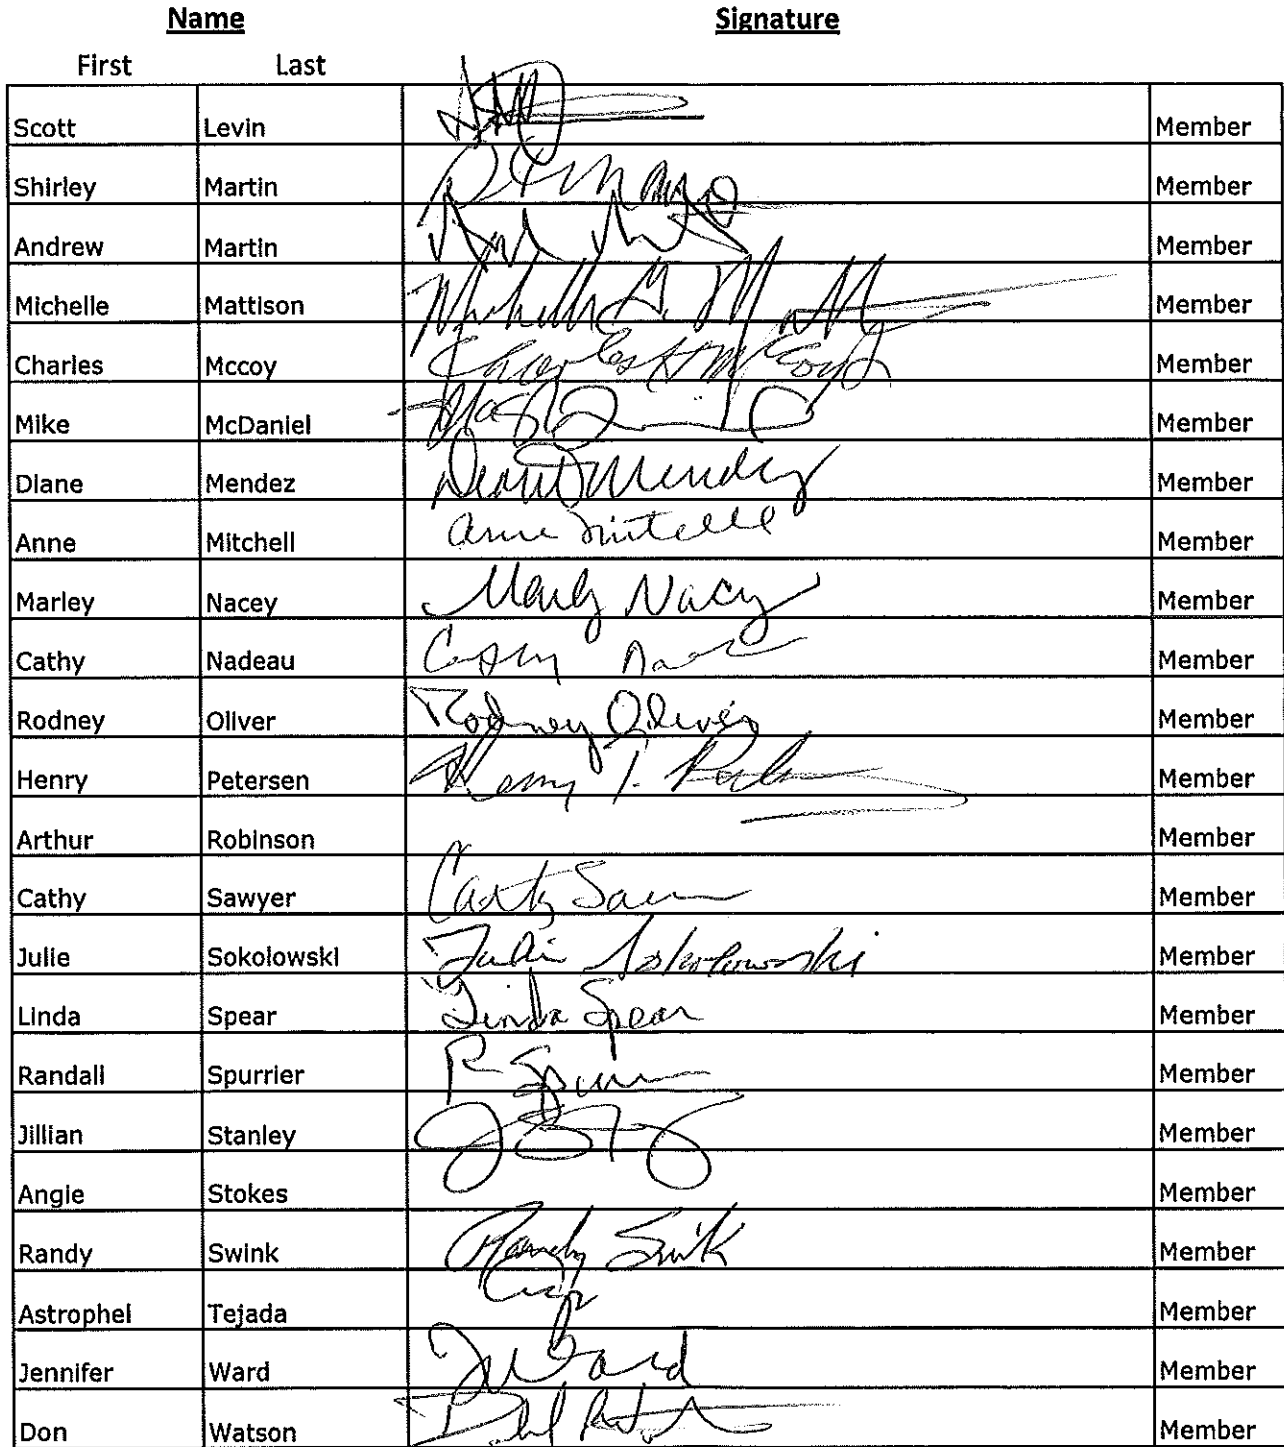 Name Signature
First Last
Scott Levin Member
Shirley Martin Member
Andrew Martin Member
Michelle Mattison Michelle G. Member
Charles Mccoy Charles H McCoy Member
Mike McDaniel Member
Diane Mendez Mendez Member
Anne Mitchell Anne Mitchell Member
Marley Nacey Marley Nacey Member
Cathy Nadeau Cathy Member
Rodney Oliver Rodney Oliver Member
Henry Petersen Henry T. Member
Arthur Robinson Member
Cathy Sawyer Cathy Member
Julie Sokolowski Julie Sokolowski Member
Linda Spear Linda Spear Member
Randall Spurrier R Member
Jillian Stanley Member
Angie Stokes Member
Randy Swink Randy Swink Member
Astrophel Tejada Member
Jennifer Ward Ward Member
Don Watson Member